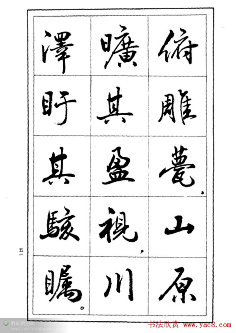 俯雕甍山原
曠其盈視川
澤盱其駭矚
五一
书法欣赏
www.yac8.com